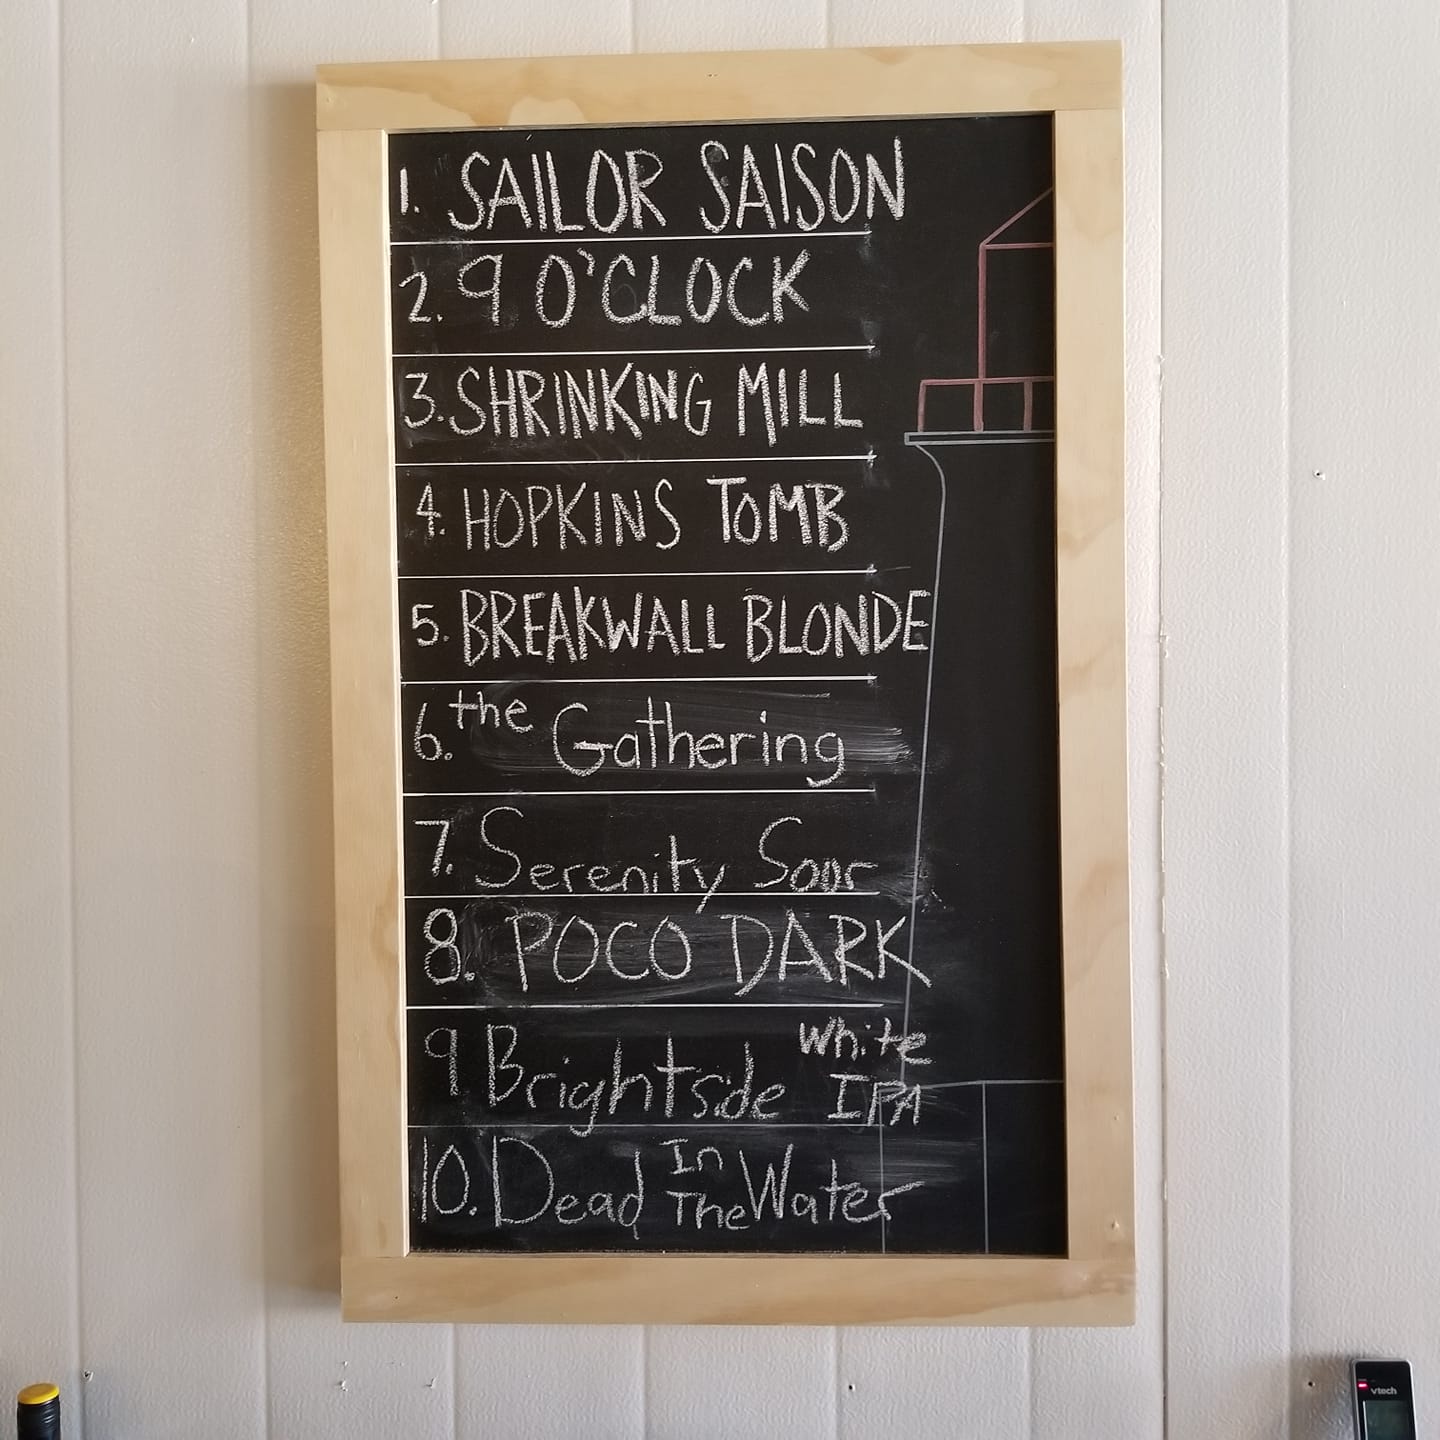 1. SAILOR SAISON
2. 9 O'CLOCK
3. SHRINKING MILL
4. HOPKINS TOMB
5. BREAKWALL BLONDE
6. the Gathering
7. Serenity Sour
8. POCO DARK
9 Brightside White IPA
10. Dead In The Water
vtech